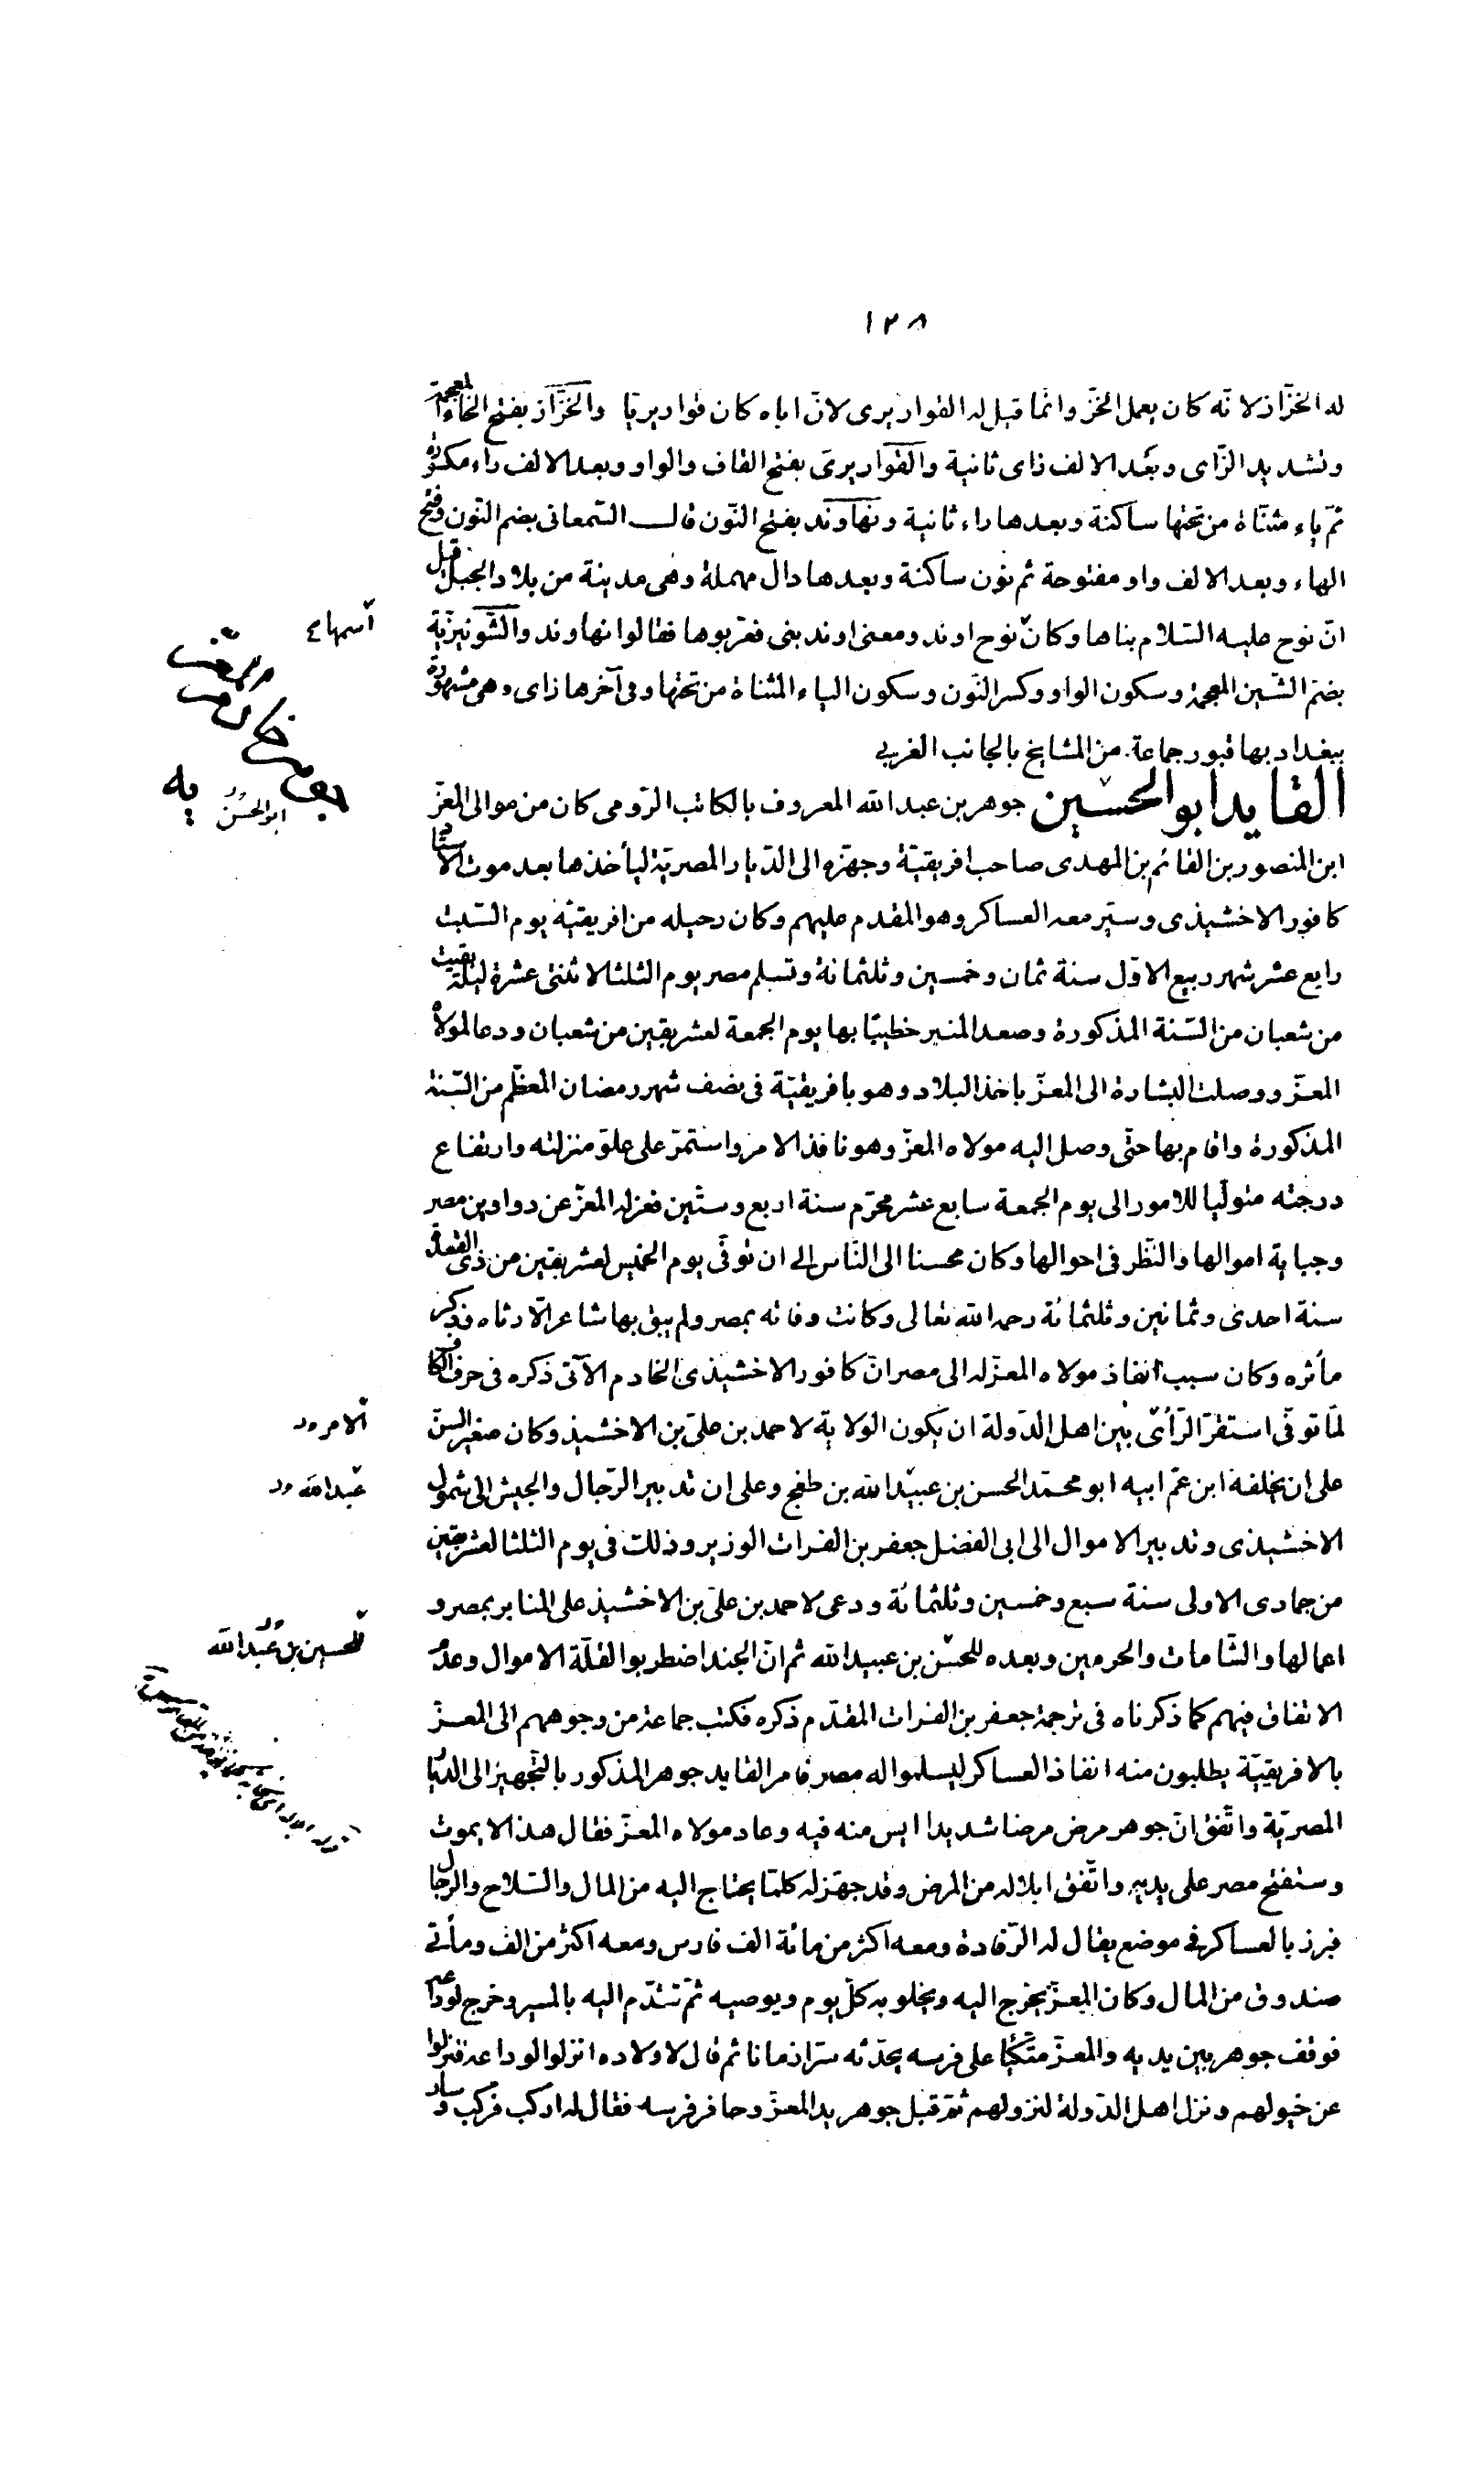 ١٢٨
له الخزّاز لانّه كان يعمل الخزّ وانّما قيل له القواريرى لانّ اباه كان قواريريّا والخزّاز بفتح الخاء المعجمة
وتشديد الزّاى وبعد الالف زاى ثانية والقواريرى بفتح القاف والواو وبعد الالف راء مكسورة
ثمّ ياء مثنّاة من تحتها ساكنة وبعدها راء ثانية ونهاوند بفتح النّون قال السّمعانى بضم النّون وفتح
الهاء وبعد الالف واو مفتوحة ثم نون ساكنة وبعدها دال مهملة وهى مدينة من بلاد الجبل قيل
انّ نوح عليه السّلام بناها وكان نوح اوند ومعنى اوند بنى فعرّبوها فقالوا نهاوند والشّونيزيّة
اسمها
بضم الشّين المعجمة وسكون الواو وكسر النّون وسكون الياء المثناة من تحتها وفى آخرها زاى وهى مشهورة
ببغداد بها قبور جماعة من المشايخ بالجانب الغربي
القايد ابو الحسين جوهر بن عبد الله المعروف بالكاتب الرّومى كان من موالى المعزّ
ابو الحسن
ابن المنصور بن القائم بن المهدى صاحب افريقيّة وجهّزه الى الدّيار المصريّة ليأخذها بعد موت الاستاد
كافور الاخشيذى وسيّر معه العساكر وهو المقدم عليهم وكان رحيله من افريقيّة يوم السّبت
رابع عشر شهر ربيع الاوّل سنة ثمان وخمسين وثلثمائة وتسلم مصر يوم الثلثا لاثنتى عشرة ليلة بقيت
من شعبان من السّنة المذكورة وصعد المنبر خطيبًا بها يوم الجمعة لعشر بقين من شعبان ودعا لمولاه
المعزّ ووصلت البشارة الى المعزّ باخذ البلاد وهو بافريقيّة فى نصف شهر رمضان المعظّم من السّنة
المذكورة واقام بها حتّى وصل اليه مولاه المعزّ وهو نافذ الامر واستمرّ على علوّ منزلته وارتفاع
درجته متولّيا للامور الى يوم الجمعة سابع عشر محرّم سنة اربع وستّين فعزله المعزّ عن دواوين مصر
وجباية اموالها والنّظر فى احوالها وكان محسنا الى النّاس الى ان توفّى يوم الخميس لعشر بقين من ذى القعدة
سنة احدى وثمانين وثلثمائة رحمه الله تعالى وكانت وفاته بمصر ولم يبق بها شاعر الّا رثاه وذكر
مأثره وكان سبب انفاذ مولاه المعزّ له الى مصر انّ كافور الاخشيذى الخادم الآتى ذكره فى حرف الكاف
لمّا توفّى استقرّ الرّأى بين اهل الدّولة ان يكون الولاية لاحمد بن علىّ بن الاخشيذ وكان صغير السنّ
الامر
على ان يخلفه ابن عمّ ابيه ابو محمّد الحسن بن عبيد الله بن طغج وعلى ان تدبير الرّجال والجيش الى شمول
عبد الله
الاخشيذى وتدبير الاموال الى ابى الفضل جعفر بن الفرات الوزير وذلك فى يوم الثلثا لعشر بقين
من جمادى الاولى سنة سبع وخمسين وثلثمائة ودعى لاحمد بن علىّ بن الاخشيذ على المنابر بمصر و
اعمالها والشّامات والحرمين وبعده للحسن بن عبيد الله ثم انّ الجند اضطربوا لقلّة الاموال وعدم
للحسين بن عبد الله
الاتفاق فيهم كما ذكرناه فى ترجمة جعفر بن الفرات المقدّم ذكره فكتب جماعة من وجوههم الى المعزّ
بالافريقيّة يطلبون منه انفاذ العساكر ليسلموا له مصر فامر القايد جوهر المذكور بالتّجهيز الى الدّيار
المصريّة واتّفق انّ جوهر مرض مرضا شديدا ايس منه فيه وعاد مولاه المعزّ فقال هذا لا يموت
وستفتح مصر على يديه واتّفق ابلاله من المرض وقد جهّز له كلما يحتاج اليه من المال والسّلاح والرّجال
فبرز بالعساكر فى موضع يقال له الرّقادة ومعه اكثر من مائة الف فارس ومعه اكثر من الف ومأتي
صندوق من المال وكان المعزّ يخرج اليه ويخلو به كلّ يوم ويوصيه ثمّ تقدّم اليه بالمسير وخرج لوداعه
فوقف جوهر بين يديه والمعزّ متّكئا على فرسه يحدّثه سرّا زمانا ثم قال لاولاده انزلوا لوداعه فنزلوا
عن خيولهم ونزل اهل الدّولة لنزولهم ثمّ قبل جوهر يد المعزّ وحافر فرسه فقال له اركب فركب وسار